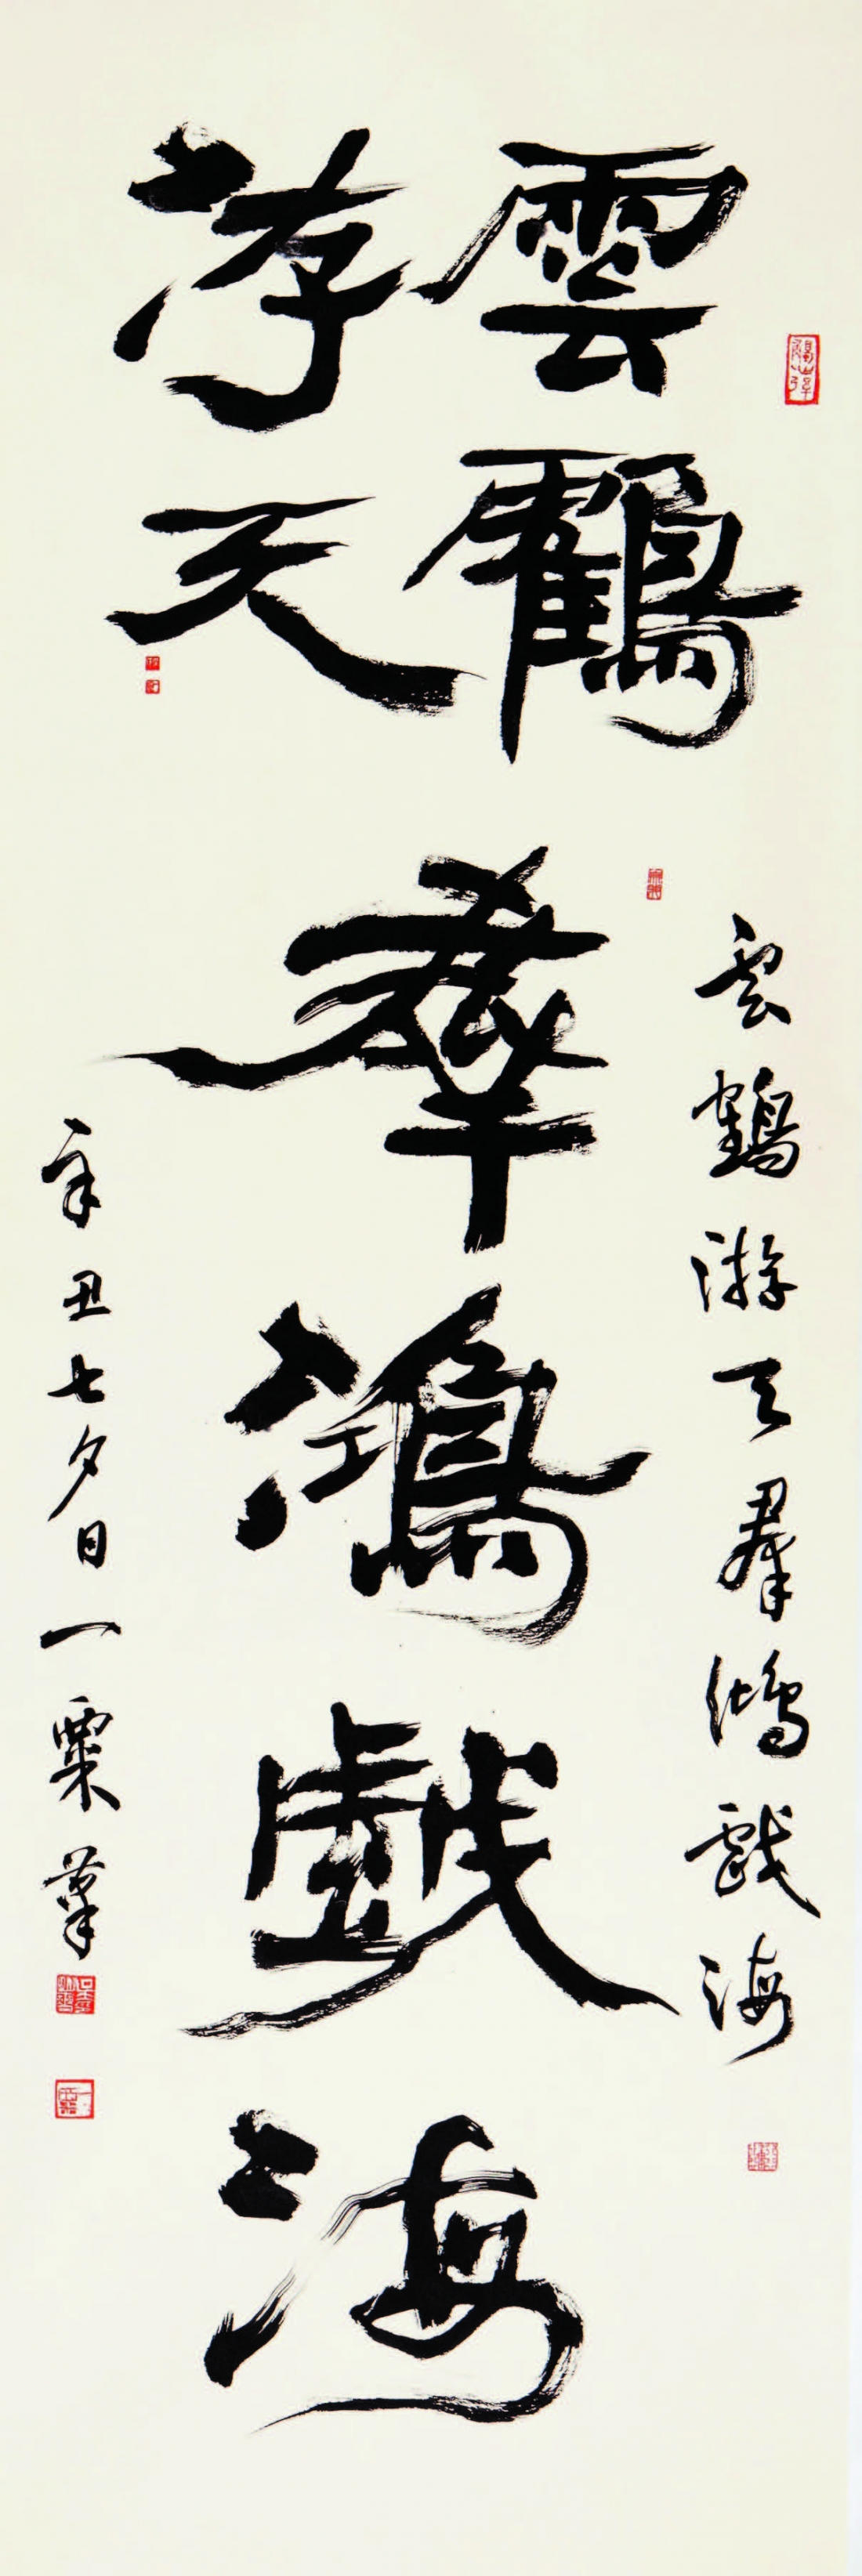 雲鶴
游天
羣鴻戲海
雲鶴游天羣鴻戲海
辛丑七夕日一粟筆